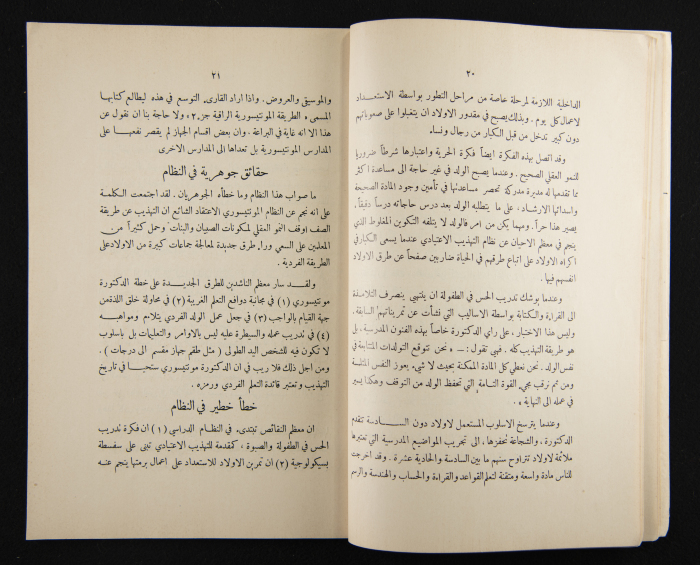 ٢٠
الداخلية اللازمة لمرحلة خاصة من مراحل التطور بواسطة الاستعداد
لاعمال كل يوم. وبذلك يصبح في مقدور الاولاد ان يتغلبوا على صعوباتهم
دون كبير تدخل من قبل الكبار من رجال ونساء.
وقد اتصل بهذه الفكرة ايضاً فكرة الحرية واعتبارها شرطاً ضرورياً
للنمو العقلي الصحيح. وعندما يصبح الولد في غير حاجة الى مساعدة اكثر
مما تقدمها له مديرة مدركة تحصر مساعدتها في تأمين وجود المادة الصحيحة
واسدائها الارشاد، على ما يتطلبه الولد بعد درس حاجاته درساً دقيقاً،
يصير هذا حراً. ومهما يكن من امر فالولد لا يتلفه التكوين المغلوط الذي
ينجم في معظم الاحيان عن نظام التهذيب الاعتيادي عندما يسعى الكبار في
اكراه الاولاد على اتباع طرقهم في الحياة ضاربين صفحاً عن طرق الاولاد
انفسهم فيها.
وعندما يوشك تدريب الحس في الطفولة ان ينتهي ينصرف التلامذة
الى القراءة والكتابة بواسطة الاساليب التي نشأت عن تمريناتهم السابقة.
وليس هذا الاختبار، على رأي الدكتورة خاصاً بهذه الفنون المدرسية، بل
هو طريقة التهذيب كله. فهي تقول: ــ « نحن نتوقع التولدات المتتابعة في
نفس الولد. نحن نعطي كل المادة الممكنة بحيث لا شيء يعوز النفس المتلمسة
ومن ثم نرقب مجيء القوة التامة التي تحفظ الولد من التوقف وهكذا يسير
في عمله الى النهاية ».
وعندما يترسخ الاسلوب المستعمل لاولاد دون السادسة تتقدم
الدكتورة، والشجاعة تحفزها، الى تجريب المواضيع المدرسية التي تعتبرها
ملائمة لاولاد تتراوح سنهم ما بين السادسة والحادية عشرة. وقد اخرجت
للناس مادة واسعة ومتقنة لتعلم القواعد والقراءة والحساب والهندسة والرسم
٢١
والموسيقى والعروض. واذا اراد القارىء التوسع في هذه ليطالع كتابها
المسمى « الطريقة المونتيسورية الراقية جزء ٢» ولا حاجة بنا ان نقول عن
هذا الا انه غاية في البراعة. وان بعض اقسام الجهاز لم يقصر نفعها على
المدارس المونتيسورية بل تعداها الى المدارس الاخرى
حقائق جوهرية في النظام
ما صواب هذا النظام وما خطأه الجوهريان. لقد اجتمعت الكلمة
على انه نجم عن النظام المونتيسوري الاعتقاد الشائع ان التهذيب عن طريقة
الصف اوقف النمو العقلي لمكونات الصبيان والبنات وحمل كثيراً من
المعلمين على السعي وراء طرق جديدة لمعالجة جماعات كبيرة من الاولاد على
الطريقة الفردية.
ولقد سار معظم الناشدين للطرق الجديدة على خطة الدكتورة
مونتيسوري (١) في مجانبة دوافع التعلم الغريبة (٢) في محاولة خلق اللذة من
جهة القيام بالواجب (٣) في جعل عمل الولد الفردي يتلاءم ومواهبه
(٤) في تدريب عمله والسيطرة عليه ليس بالاوامر والتعليمات بل باسلوب
لا تكون فيه للشخص اليد الطولى (مثل طقم جهاز مقسم الى درجات).
ومن اجل ذلك فلا ريب في ان الدكتورة مونتيسوري ستحيا في تاريخ
التهذيب وتعتبر قائدة التعلم الفردي ورمزه.
خطأ خطير في النظام
ان معظم النقائص تبتدىء في النظام الدراسي (١) ان فكرة تدريب
الحس في الطفولة والصبوة، كمقدمة للتهذيب الاعتيادي تبنى على سفسطة
بسيكولوجية (٢) ان تمرين الاولاد للاستعداد على اعمال برمتها ينجم عنه